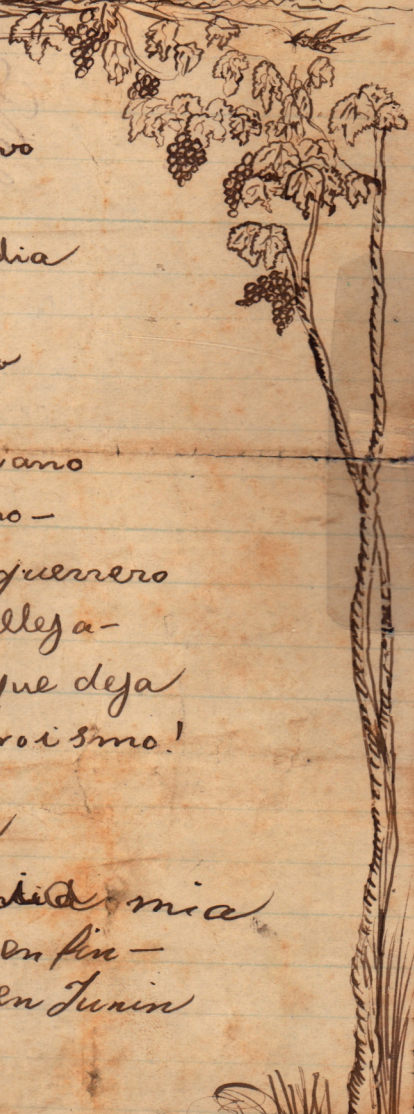 vo
dia
o
iano
no-
guerrero
lleja-
que deja
roismo!
mia
en fin-
en Junin